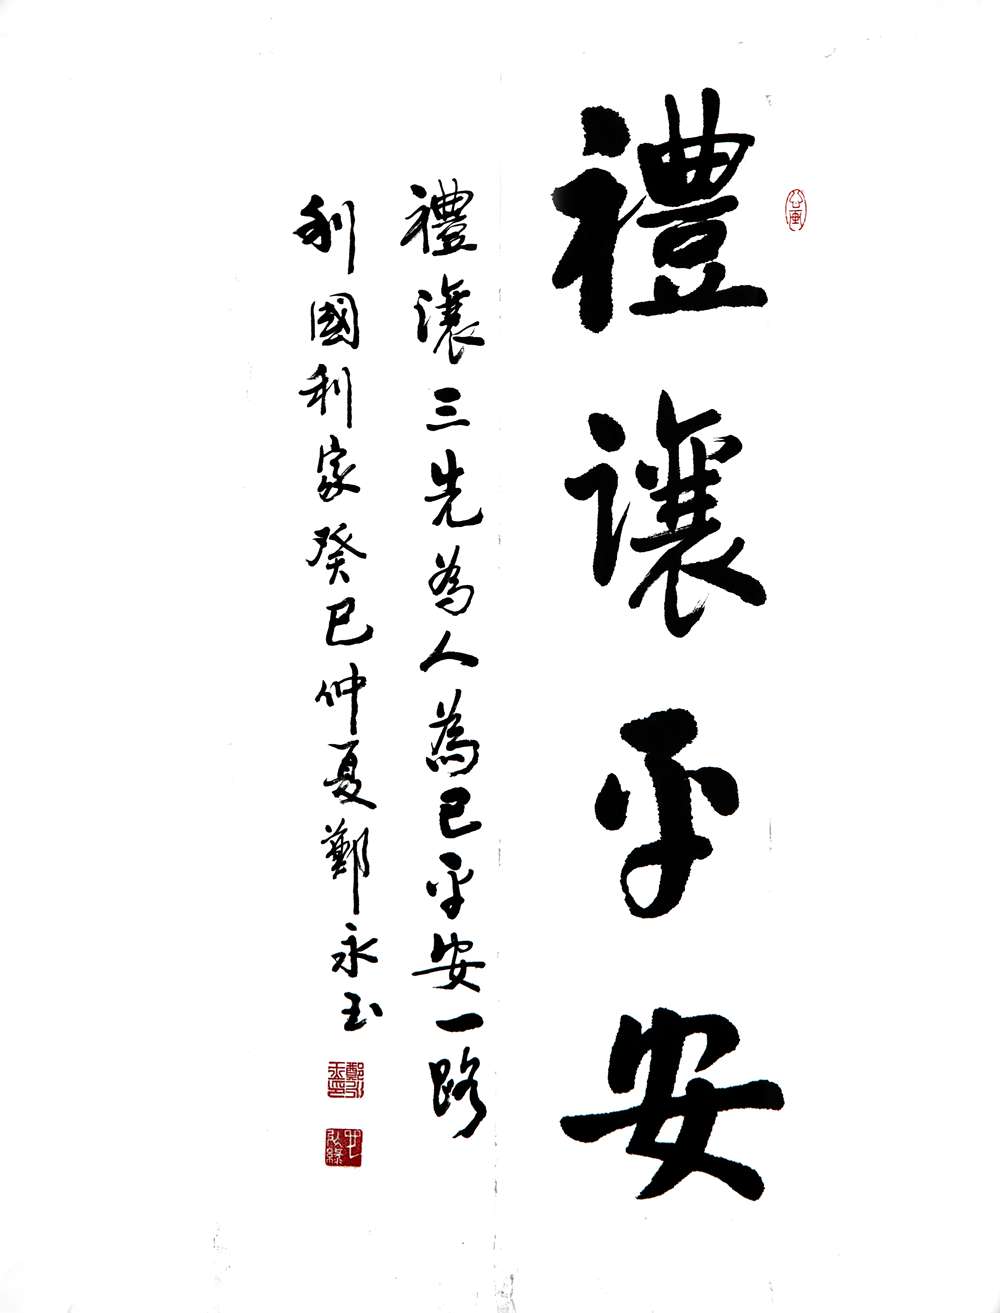 禮讓平安
禮讓三先為人為己平安一路
利國利家癸巳仲夏鄭永玉